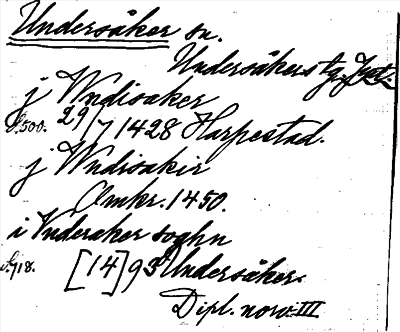 Undersåker sn.
Undersåkers tg. Jpt.
j Wndisaker
s. 500. 29/7 1428 Harpestad.
j Wndisakir
Omkr. 1450.
i Vnderaker soghn
s. 918. [14]93 Undersåker.
Dipl. norv. III